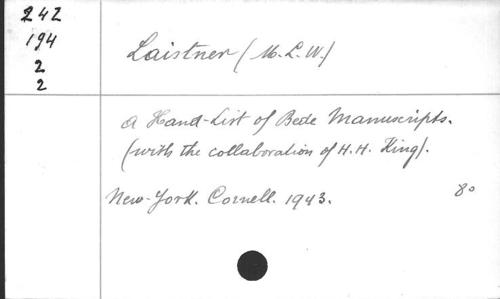 242
194
2
2
Laistner (M. L. W.)
A Hand-List of Bede Manuscripts.
(with the collaboration of H. H. King).
New-York. Cornell. 1943. 8º